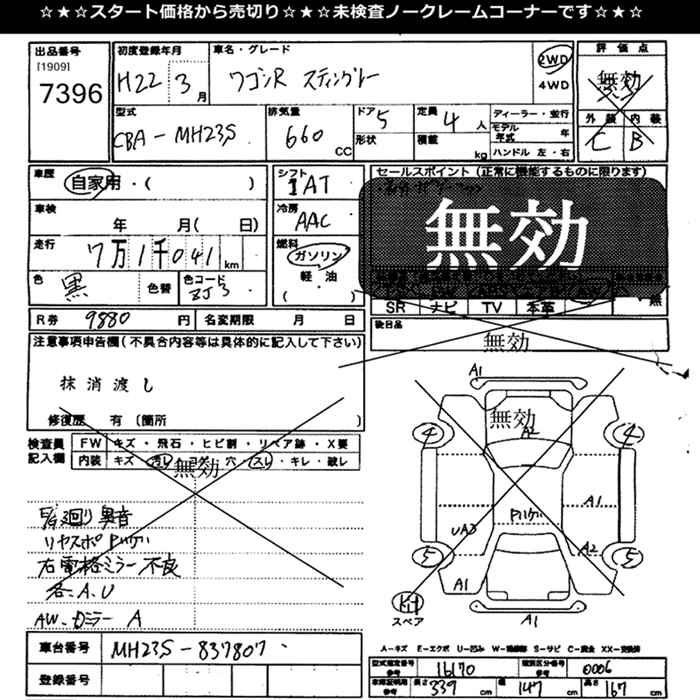 ☆★☆★スタート価格から売切り☆★☆★未検査ノークレームコーナーです☆★☆
出品番号 初度登録年月 車名・グレード 評価点
[1909]
7396 H22 3月 ワゴンR スティングレー 2WD 4WD 無効
型式 排気量 ドア 5 定員 4人 ディーラー・並行 外装 内装
CBA-MH23S 660 CC 形状 積載 kg モデル年式 年 C B
ハンドル 左・右
車歴 自家用・( ) シフト IAT セールスポイント (正常に機能するものに限ります)
車検 年 月( 日) 冷房 AAC 無効
走行 7万1千041km 燃料 ガソリン 軽・油 ( )
色 黒 色替 色コード ZJ3 SR ナビ TV 本革 無
R券 9880円 名変期限 月 日 後日品
無効
注意事項申告欄(不具合内容等は具体的に記入して下さい)
抹消渡し
修復歴 有 (箇所 )
検査員記入欄 FW キズ・飛石・ヒビ割・リペア跡・X要
内装 キズ・汚れ・コゲ・穴・スレ・キレ・破レ
無効
異音
リヤスポ
右電格ミラー不良
各A.U
A
車台番号 MH23S-837807
登録番号
A1
無効
A2
4 4
A1
UA3
A2
5 5
A1
スペア
A1
A-キズ E-エクボ U-凹み W-補修跡 S-サビ C-腐食 XX-交換済
型式指定番号 参考 16170 類別区分番号 参考 0006
車庫証明用 参考 長さ 339cm 幅 147cm 高さ 167cm